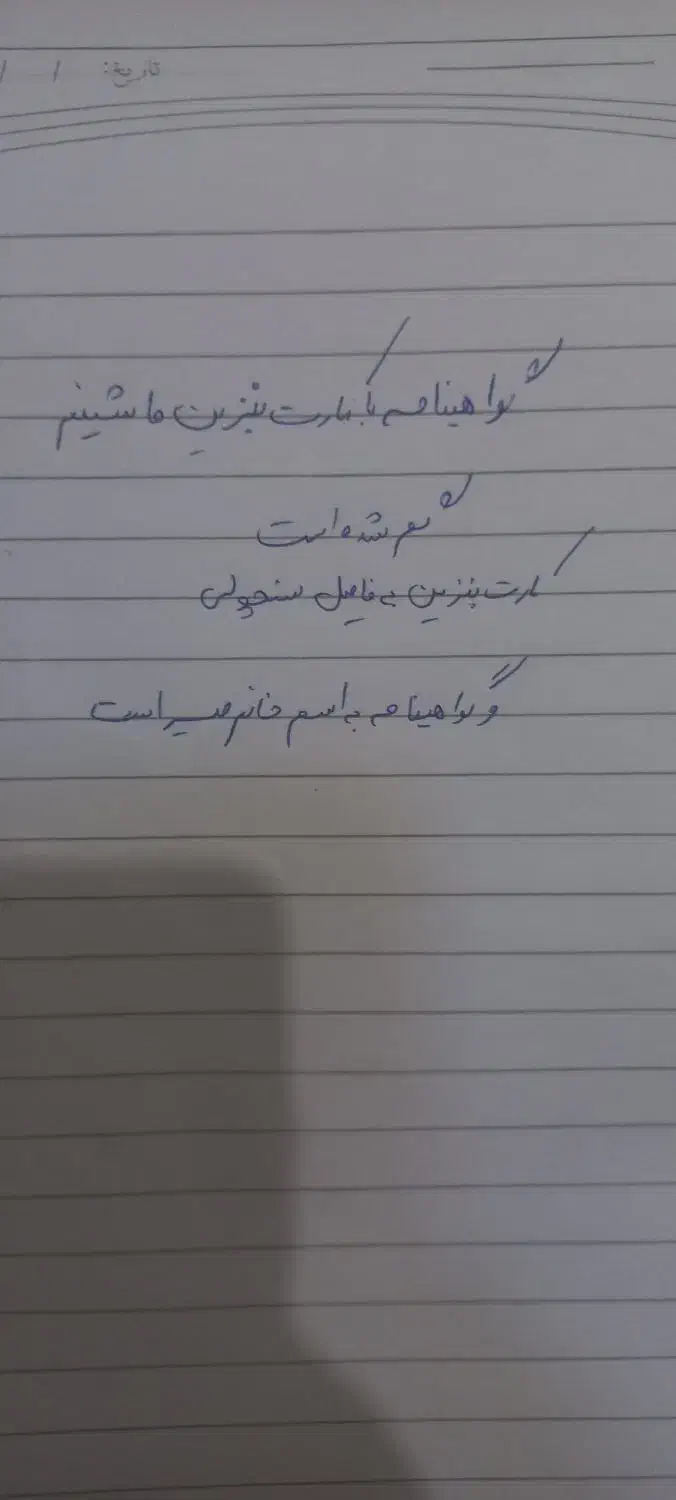 تاریخ: / /
گواهینامه با کارت بنزین ماشینم
گم شده است
کارت بنزین به فامیل سنچولی
و گواهینامه به اسم خانم میر است